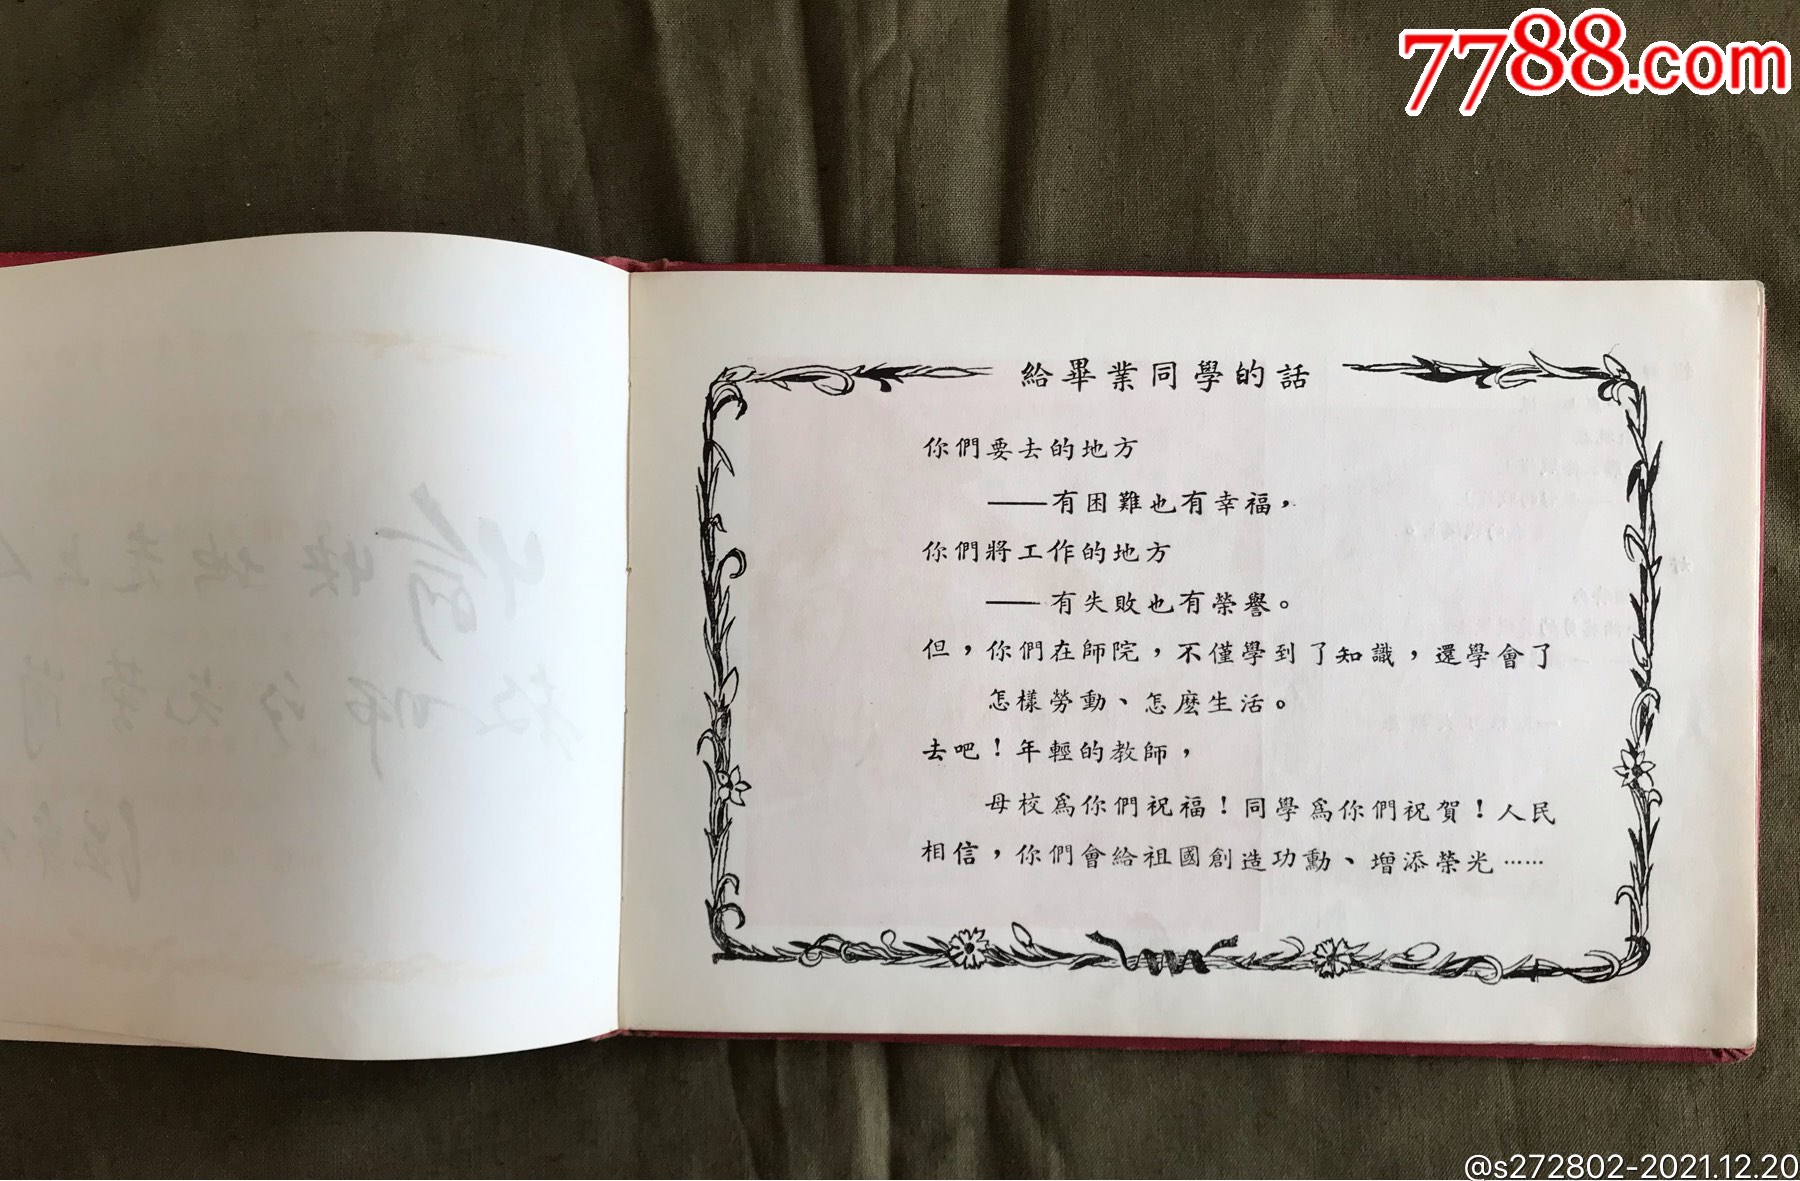 7788.com
給畢業同學的話
你們要去的地方
——有困難也有幸福，
你們將工作的地方
——有失敗也有榮譽。
但，你們在師院，不僅學到了知識，還學會了
怎樣勞動、怎麽生活。
去吧！年輕的教師，
母校爲你們祝福！同學爲你們祝賀！人民
相信，你們會給祖國創造功勳、增添榮光……
@s272802-2021.12.20